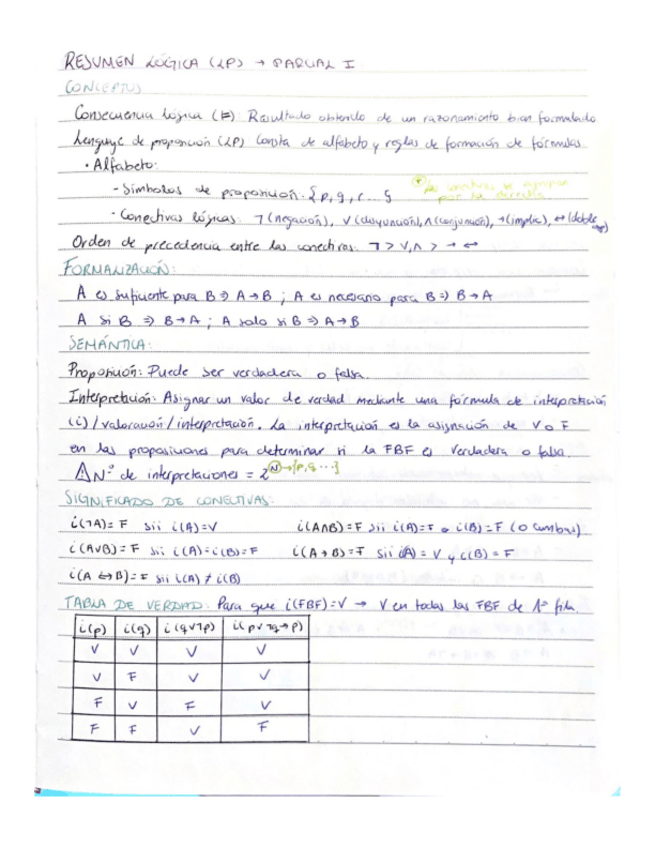 RESUMEN LÓGICA (LP) → PARCIAL I
CONCEPTOS
Consecuencia lógica (⊨): Resultado obtenido de un razonamiento bien formalizado
Lenguaje de proposición (LP) Consta de alfabeto y reglas de formación de fórmulas.
· Alfabeto:
- Símbolos de proposición: {p, q, r ... }
las conectivas se agrupan
por la derecha
- Conectivas lógicas: ¬(negación), ∨(disyunción), ∧(conjunción), →(implic), ↔(doble
Orden de precedencia entre las conectivas: ¬ > ∨, ∧ > → ↔
FORMALIZACIÓN:
A es suficiente para B ⇒ A → B ; A es necesario para B ⇒ B → A
A si B ⇒ B → A ; A solo si B ⇒ A → B
SEMÁNTICA:
Proposición: Puede ser verdadera o falsa.
Interpretación: Asignar un valor de verdad mediante una fórmula de interpretación
(i) / valoración / interpretación. La interpretación es la asignación de V o F
en las proposiciones para determinar si la FBF es verdadera o falsa.
⚠ Nº de interpretaciones = 2^N → {p, q ...}
SIGNIFICADO DE CONECTIVAS:
i(¬A) = F sii i(A) = V i(A∧B) = F sii i(A) = F o i(B) = F (o ambas)
i(A∨B) = F sii i(A) = i(B) = F i(A → B) = F sii i(A) = V y i(B) = F
i(A ↔ B) = F sii i(A) ≠ i(B)
TABLA DE VERDAD: Para que i(FBF) = V → V en todas las FBF de 1ª fila.
i(p) i(q) i(q∨¬p) i(p∨¬q→p)
V V V V
V F V V
F V F V
F F V F